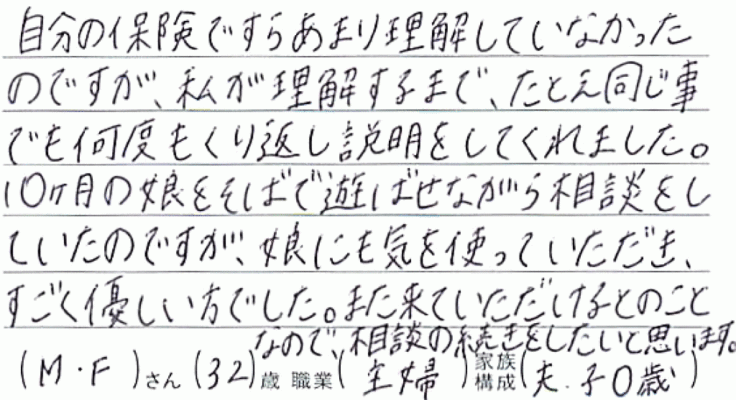 自分の保険ですらあまり理解していなかった
のですが、私が理解するまで、たとえ同じ事
でも何度もくり返し説明をしてくれました。
10ヶ月の娘をそばで遊ばせながら相談をし
ていたのですが、娘にも気を使っていただき、
すごく優しい方でした。また来ていただけるとのこと
なので、相談の続きをしたいと思います。
(M・F)さん(32)歳 職業(主婦)家族構成(夫・子0歳)